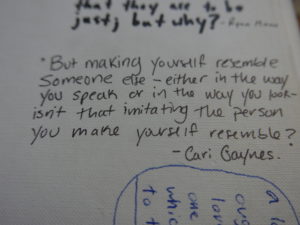 that they are to be
just, but why? - Ryan
"But making yourself resemble
someone else - either in the way
you speak or in the way you look-
isn't that imitating the person
you make yourself resemble?
- Cari Gaynes.
a
oug
lov
one
whic
to t